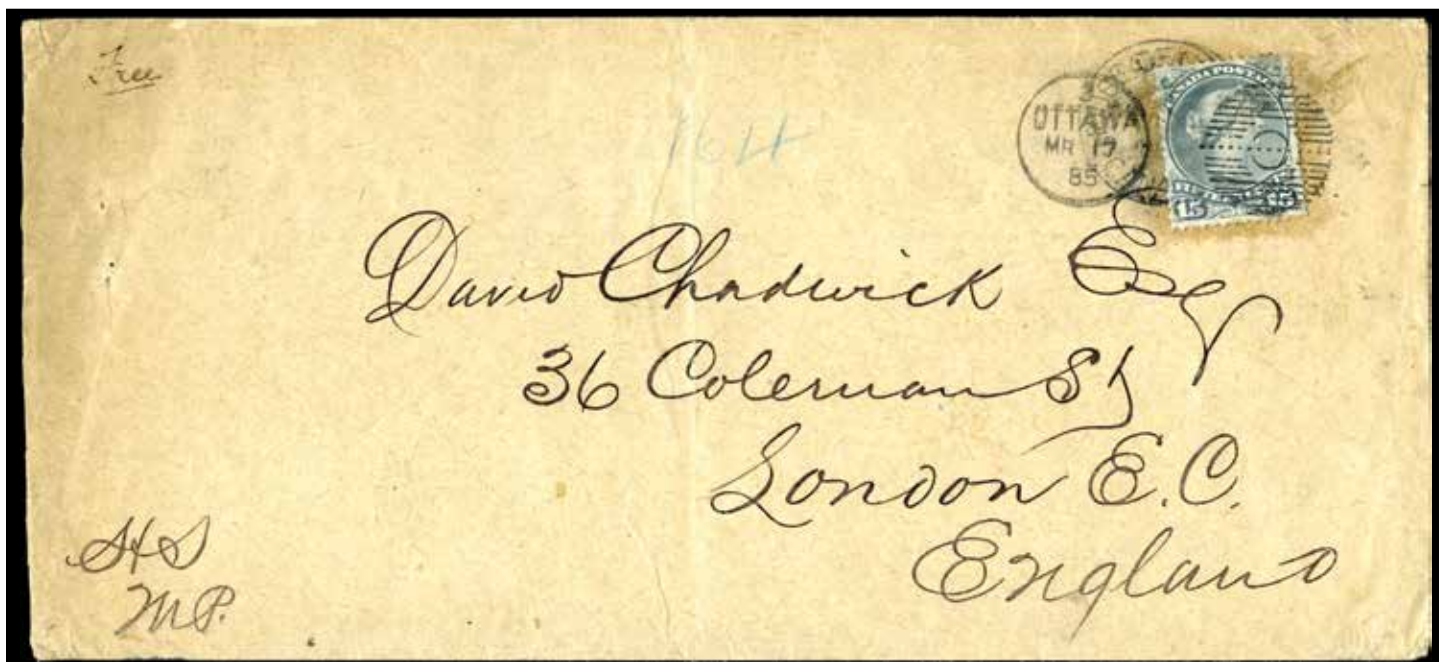 Free
164
3
OTTAWA
MR 17
85
CANADA POSTAGE
15 15
David Chadwick Esq
36 Coleman St
London E.C.
England
HS
MP.